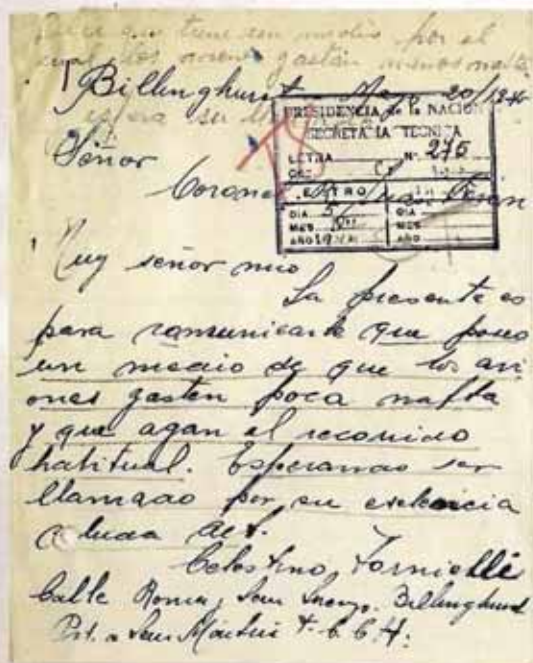 Dice que tiene un medio por el
cual los aviones gastan menos nafta
espera su
Billinghurst Mayo 20/1946
PRESIDENCIA de la NACION
SECRETARIA TECNICA
Señor
LETRA Nº 275
Coronel Perón
DIA 5
DIA
MES
MES
AÑO
AÑO
Muy señor mio
La presente es
para comunicarle que poseo
un medio de que los avi
ones gasten poca nafta
y que agan el recorrido
habitual. Esperando ser
llamado por su
saluda
Celestino Fornielli
Calle Roma y San Lorenzo. Billinghurst
Pdo. a San Martin F. C. C. A.